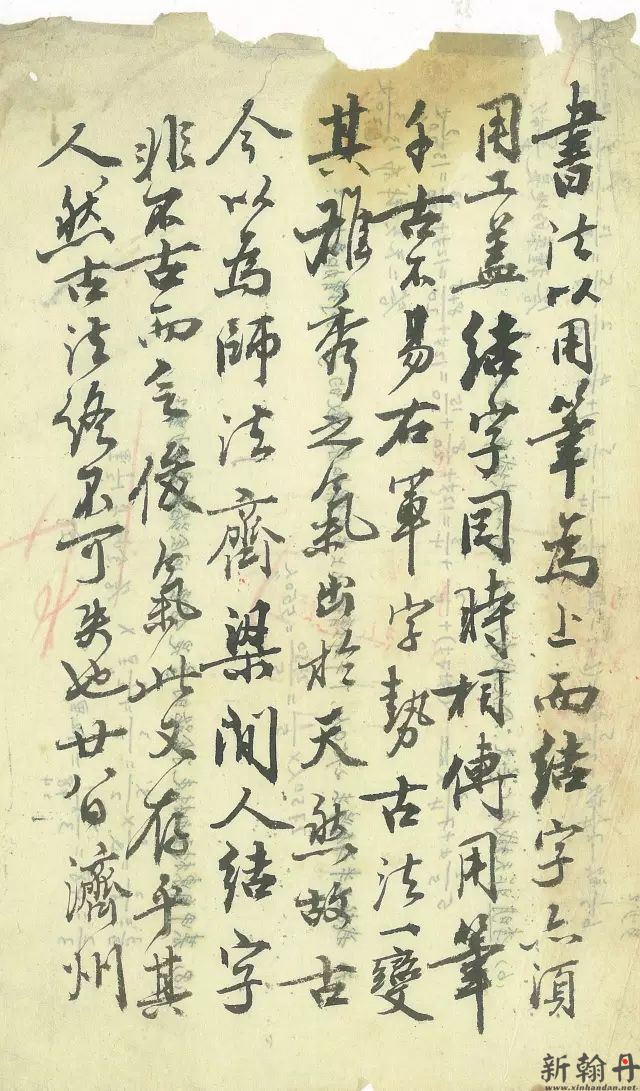 書法以用筆為上而結字亦須
用工盖結字因時相傳用筆
千古不易右軍字勢古法一變
其雄秀之氣出於天然故古
今以為師法齊梁間人結字
非不古而乏俊氣此又存乎其
人然古法終不可失也廿八日濟州
新翰丹
www.xinhandan.net